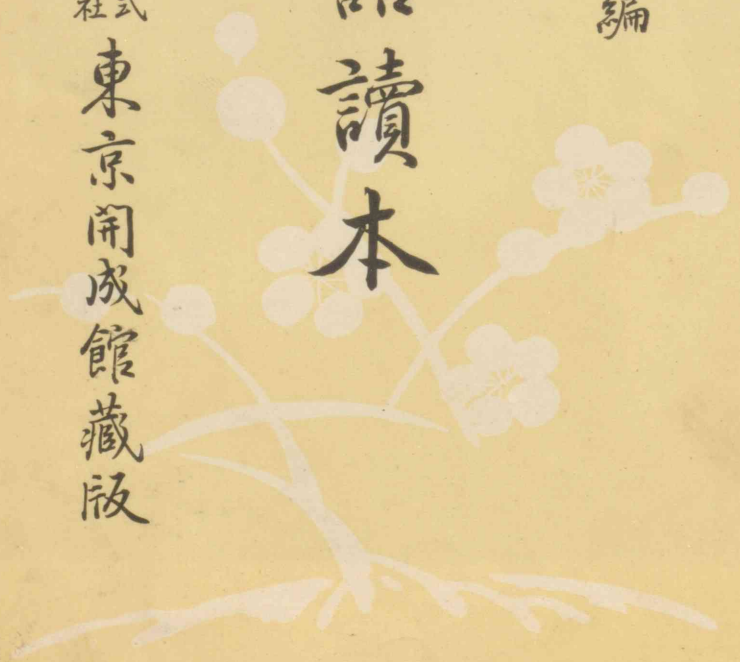 編
讀本
式社東京開成館藏版